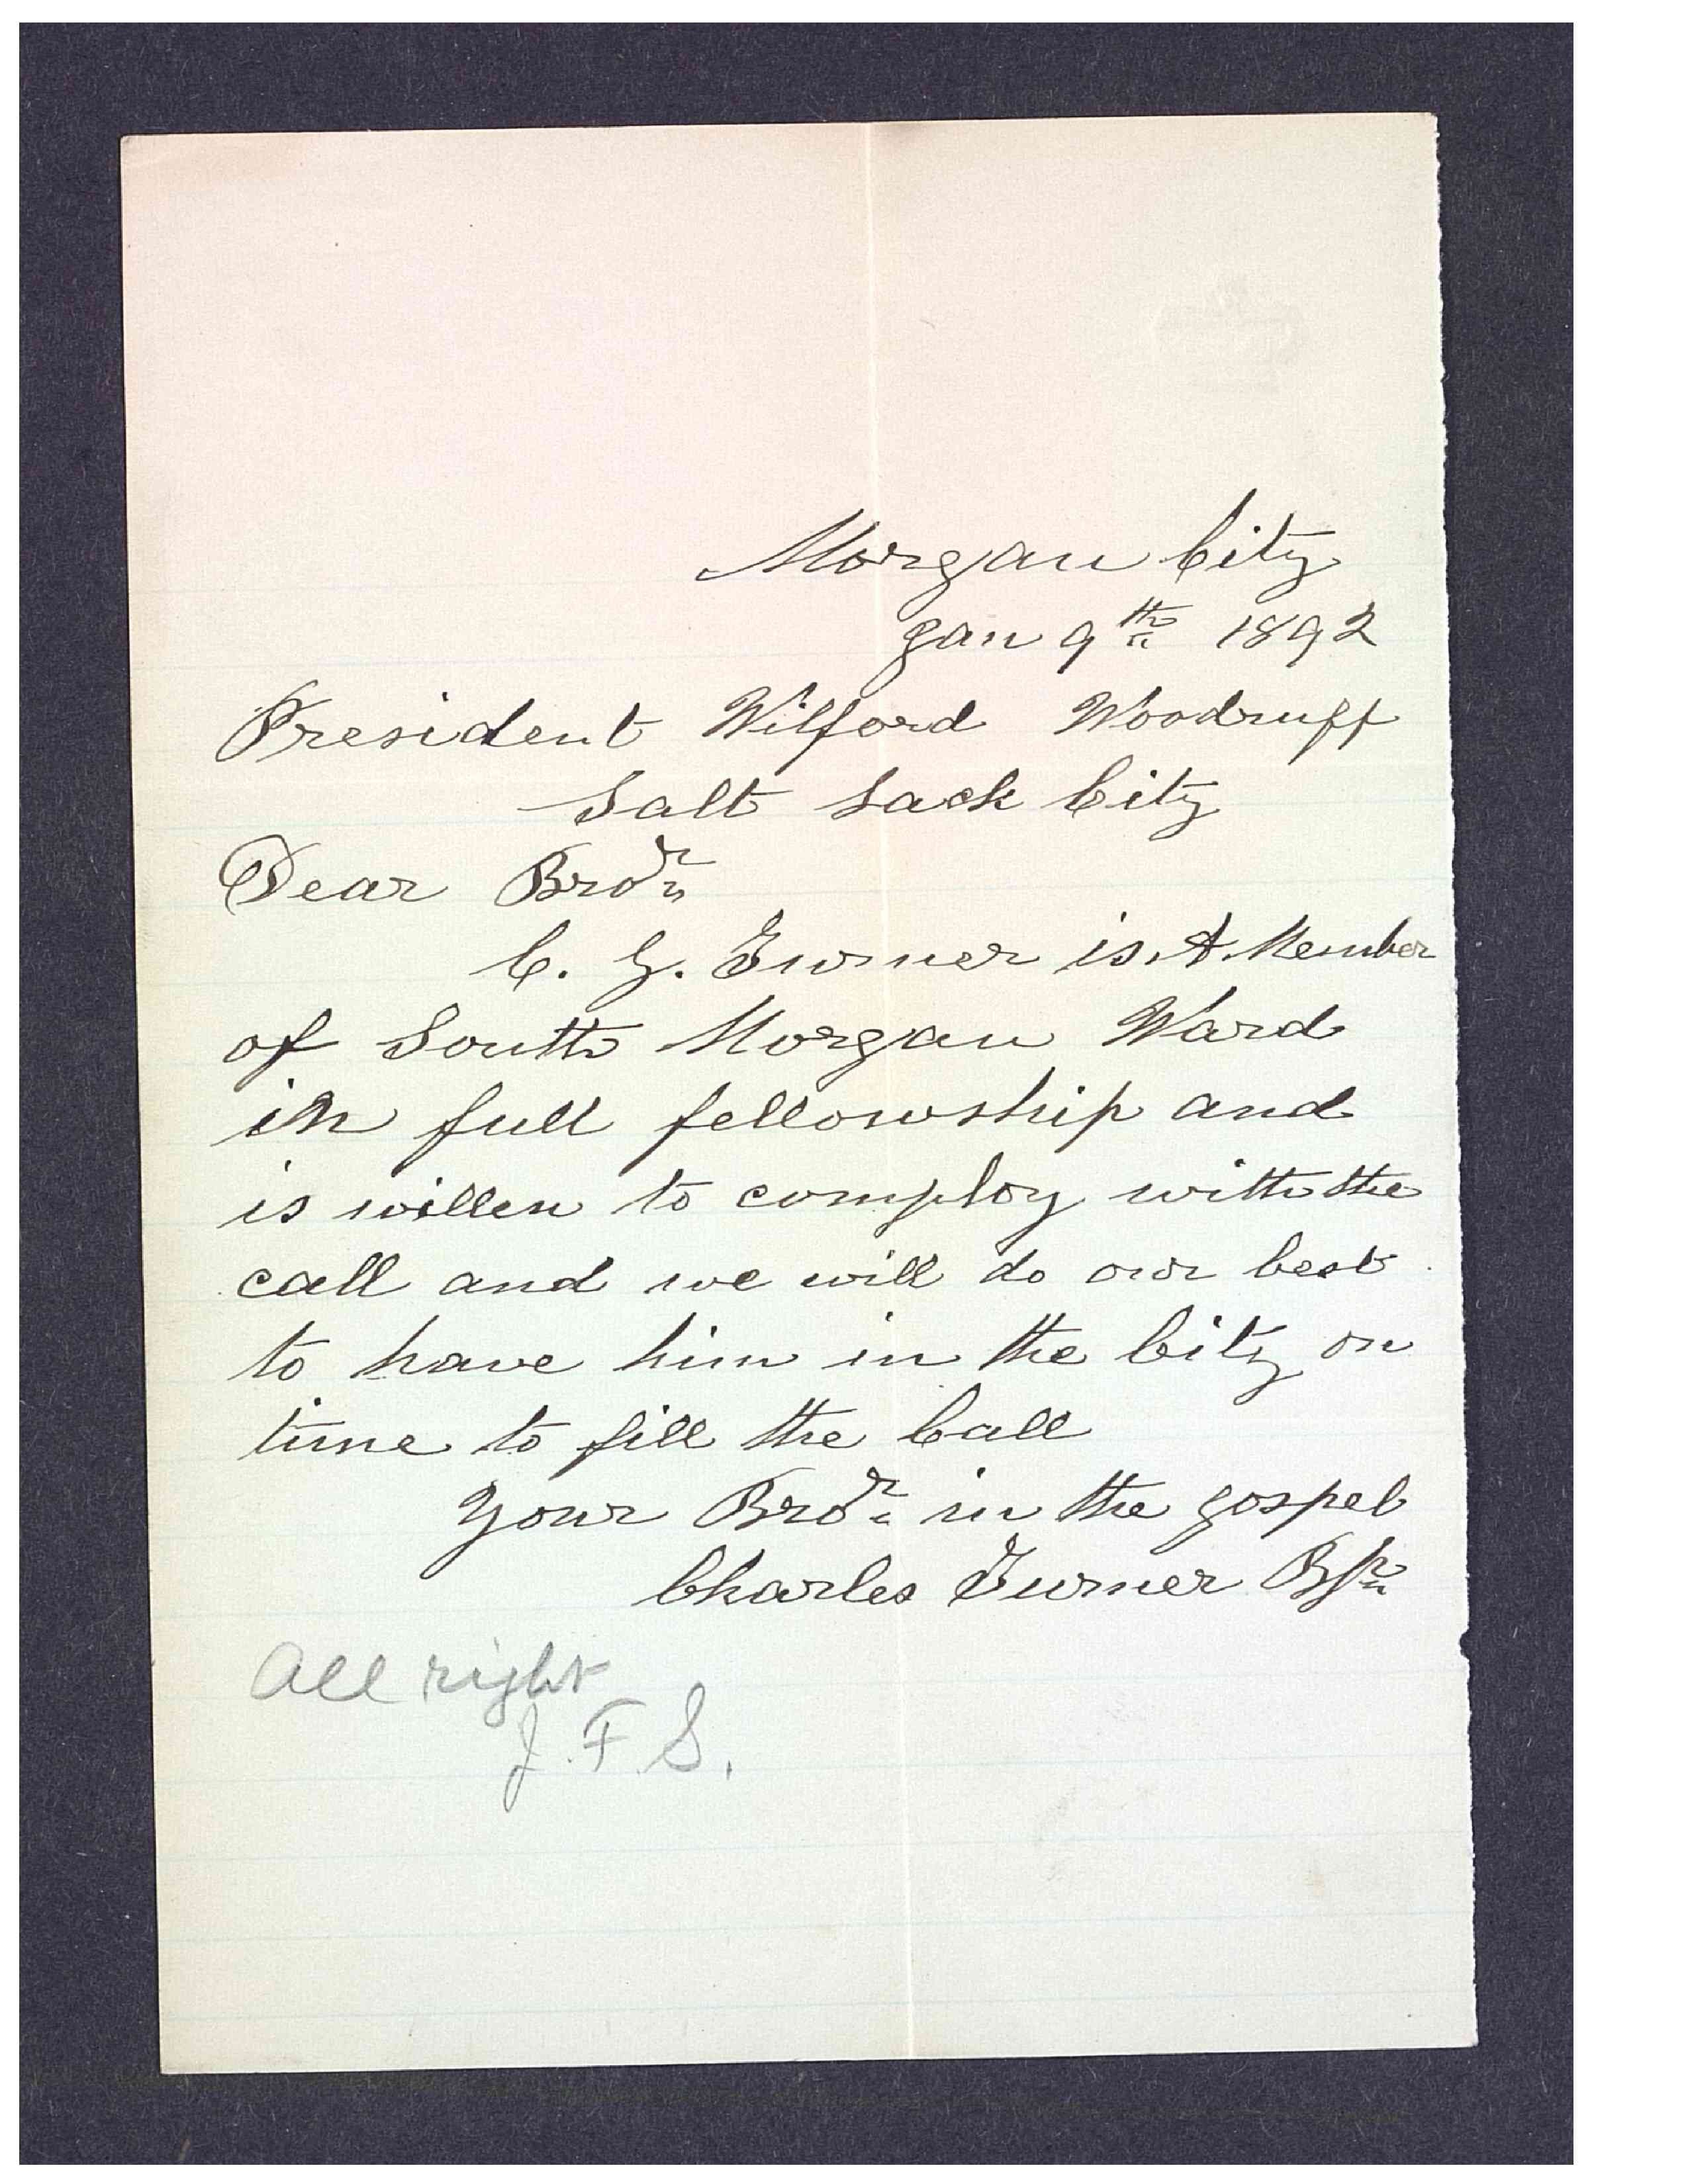 Morgan City
Jan 9th 1892
President Wilford Woodruff
Salt Lack City
Dear Bror
C. G. Turner is A Member
of South Morgan Ward
in full fellowship and
is willen to comploy with the
call and we will do our best
to have him in the City on
time to fill the Call
Your Bror in the gospel
Charles Turner Bp
All right
J. F. S.